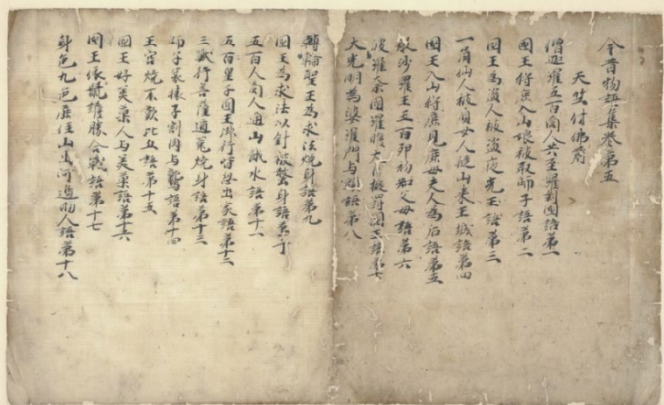 今昔物語集巻第五
天竺付佛前
僧迦羅五百商人共至羅刹國語第一
國王狩鹿入山娘被取師子語第二
國王為盗人被盗夜光玉語第三
一角仙人被負女人従山来王城語第四
國王入山狩鹿見鹿母夫人為后語第五
般沙羅王五百卵初知父母語第六
波羅奈國羅睺大臣擬罸國王語第七
大光明為婆羅門与頭語第八
轉輪聖王為求法焼身語第九
國王為求法以針被螫身語第十
五百人商人通山餓水語第十一
五百皇子國王御行皆忽出家語第十二
三獣行菩薩道菟焼身語第十三
師子哀猿子割肉与鷲語第十四
王宮焼不歎比丘語第十五
國王好美菓人与美菓語第十六
國王依鼠護勝合戦語第十七
身色九色鹿住山出河邊助人語第十八